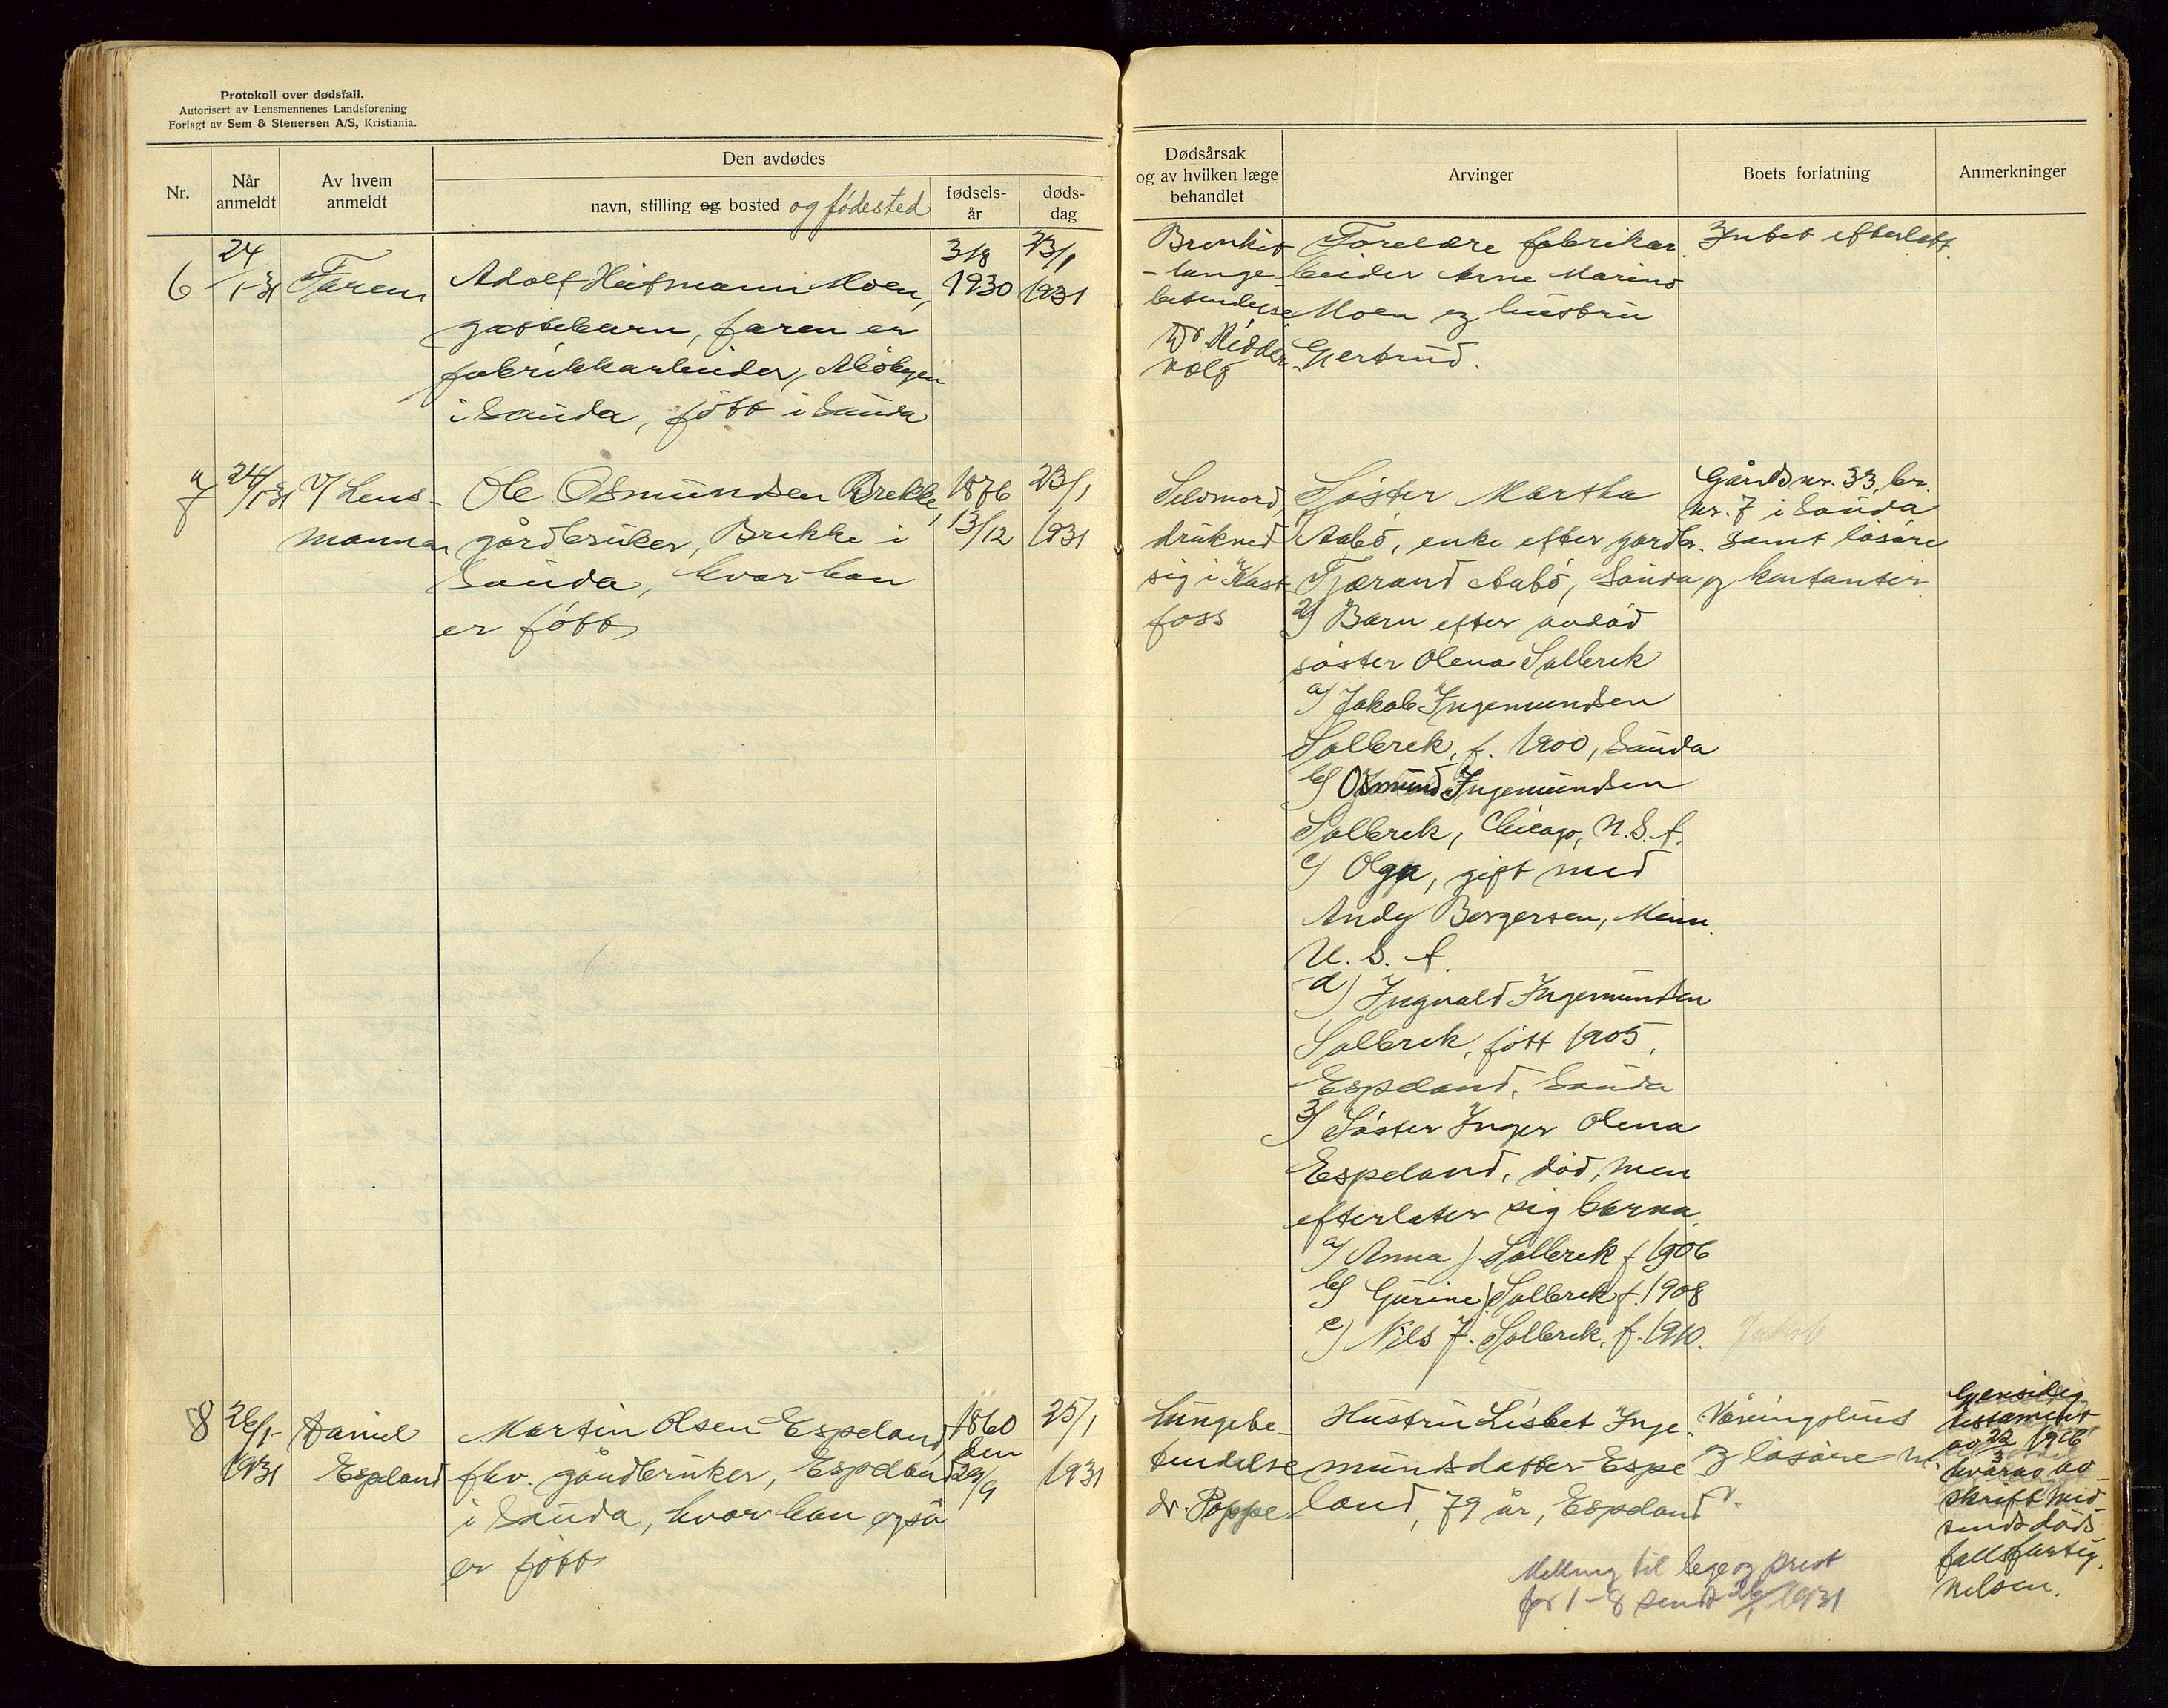 Protokoll over dødsfall.
Autorisert av Lensmennenes Landsforening
Forlagt av Sem & Stenersen A/S, Kristiania.
Nr.
Når anmeldt
Av hvem anmeldt
Den avdødes
navn, stilling og bosted og fødested
fødsels-år
døds-dag
Dødsårsak og av hvilken læge behandlet
Arvinger
Boets forfatning
Anmerkninger
6
24/1-31
Faren
Adolf Heitmann Moen,
gossebarn, faren er
fabrikkarbeider, Åbøbyen
i Sauda, født i Sauda
3/8
1930
23/1
1931
Bronkit
-lunge-
betendelse
Dr Ridder-
vold
Foreldre fabrikar-
beider Arne Marius
Moen og hustru
Gjertrud.
Intet efterlatt.
7
24/1-31
V/ Lens-
mannen
Ole Osmundsen Brekke,
gårdbruker, Brekke i
Sauda, hvor han
er født
1876
13/12
23/1
1931
Selvmord,
drukned
sig i
foss
Søster Martha
Aabø, enke efter gårdbr.
Tjærand Aabø, Sauda
2) Barn efter avdød
søster Olena Solbrek
a) Jakob Ingemundsen
Solbrek, f. 1900, Sauda
b) Osmund Ingemundsen
Solbrek, Chicago, U.S.A.
c) Olga, gift med
Andy Borgersen, Minn.
U.S.A.
d) Ingvald Ingemundsen
Solbrek, født 1905,
Espeland, Sauda
3) Søster Inger Olena
Espeland, død, men
efterlater sig barna
a) Anna J. Solbrek f. 1906
b) Gurine J. Solbrek f. 1908
c) Nils J. Solbrek, f. 1910.
Gårdsnr. 33, br.
nr. 7 i Sauda
samt løsøre
og kontanter.
Jakob
8
26/1-
1931
Daniel
Espeland
Martin Olsen Espeland,
fhv. gårdbruker, Espeland
i Sauda, hvor han også
er født
1860
den
29/9
25/1
1931
Lungebe-
tendelse
dr. Poppe
Hustru Lisbet Inge-
mundsdatter Espe-
land, 79 år, Espeland
Våningshus
og løsøre
Gjensidig
testament
av 22/3 1916
hvorav av-
skrift med-
sendt døds-
fallsforteg-
nelsen.
Melding til lege og prest
for 1-8 sendt 26/1 1931